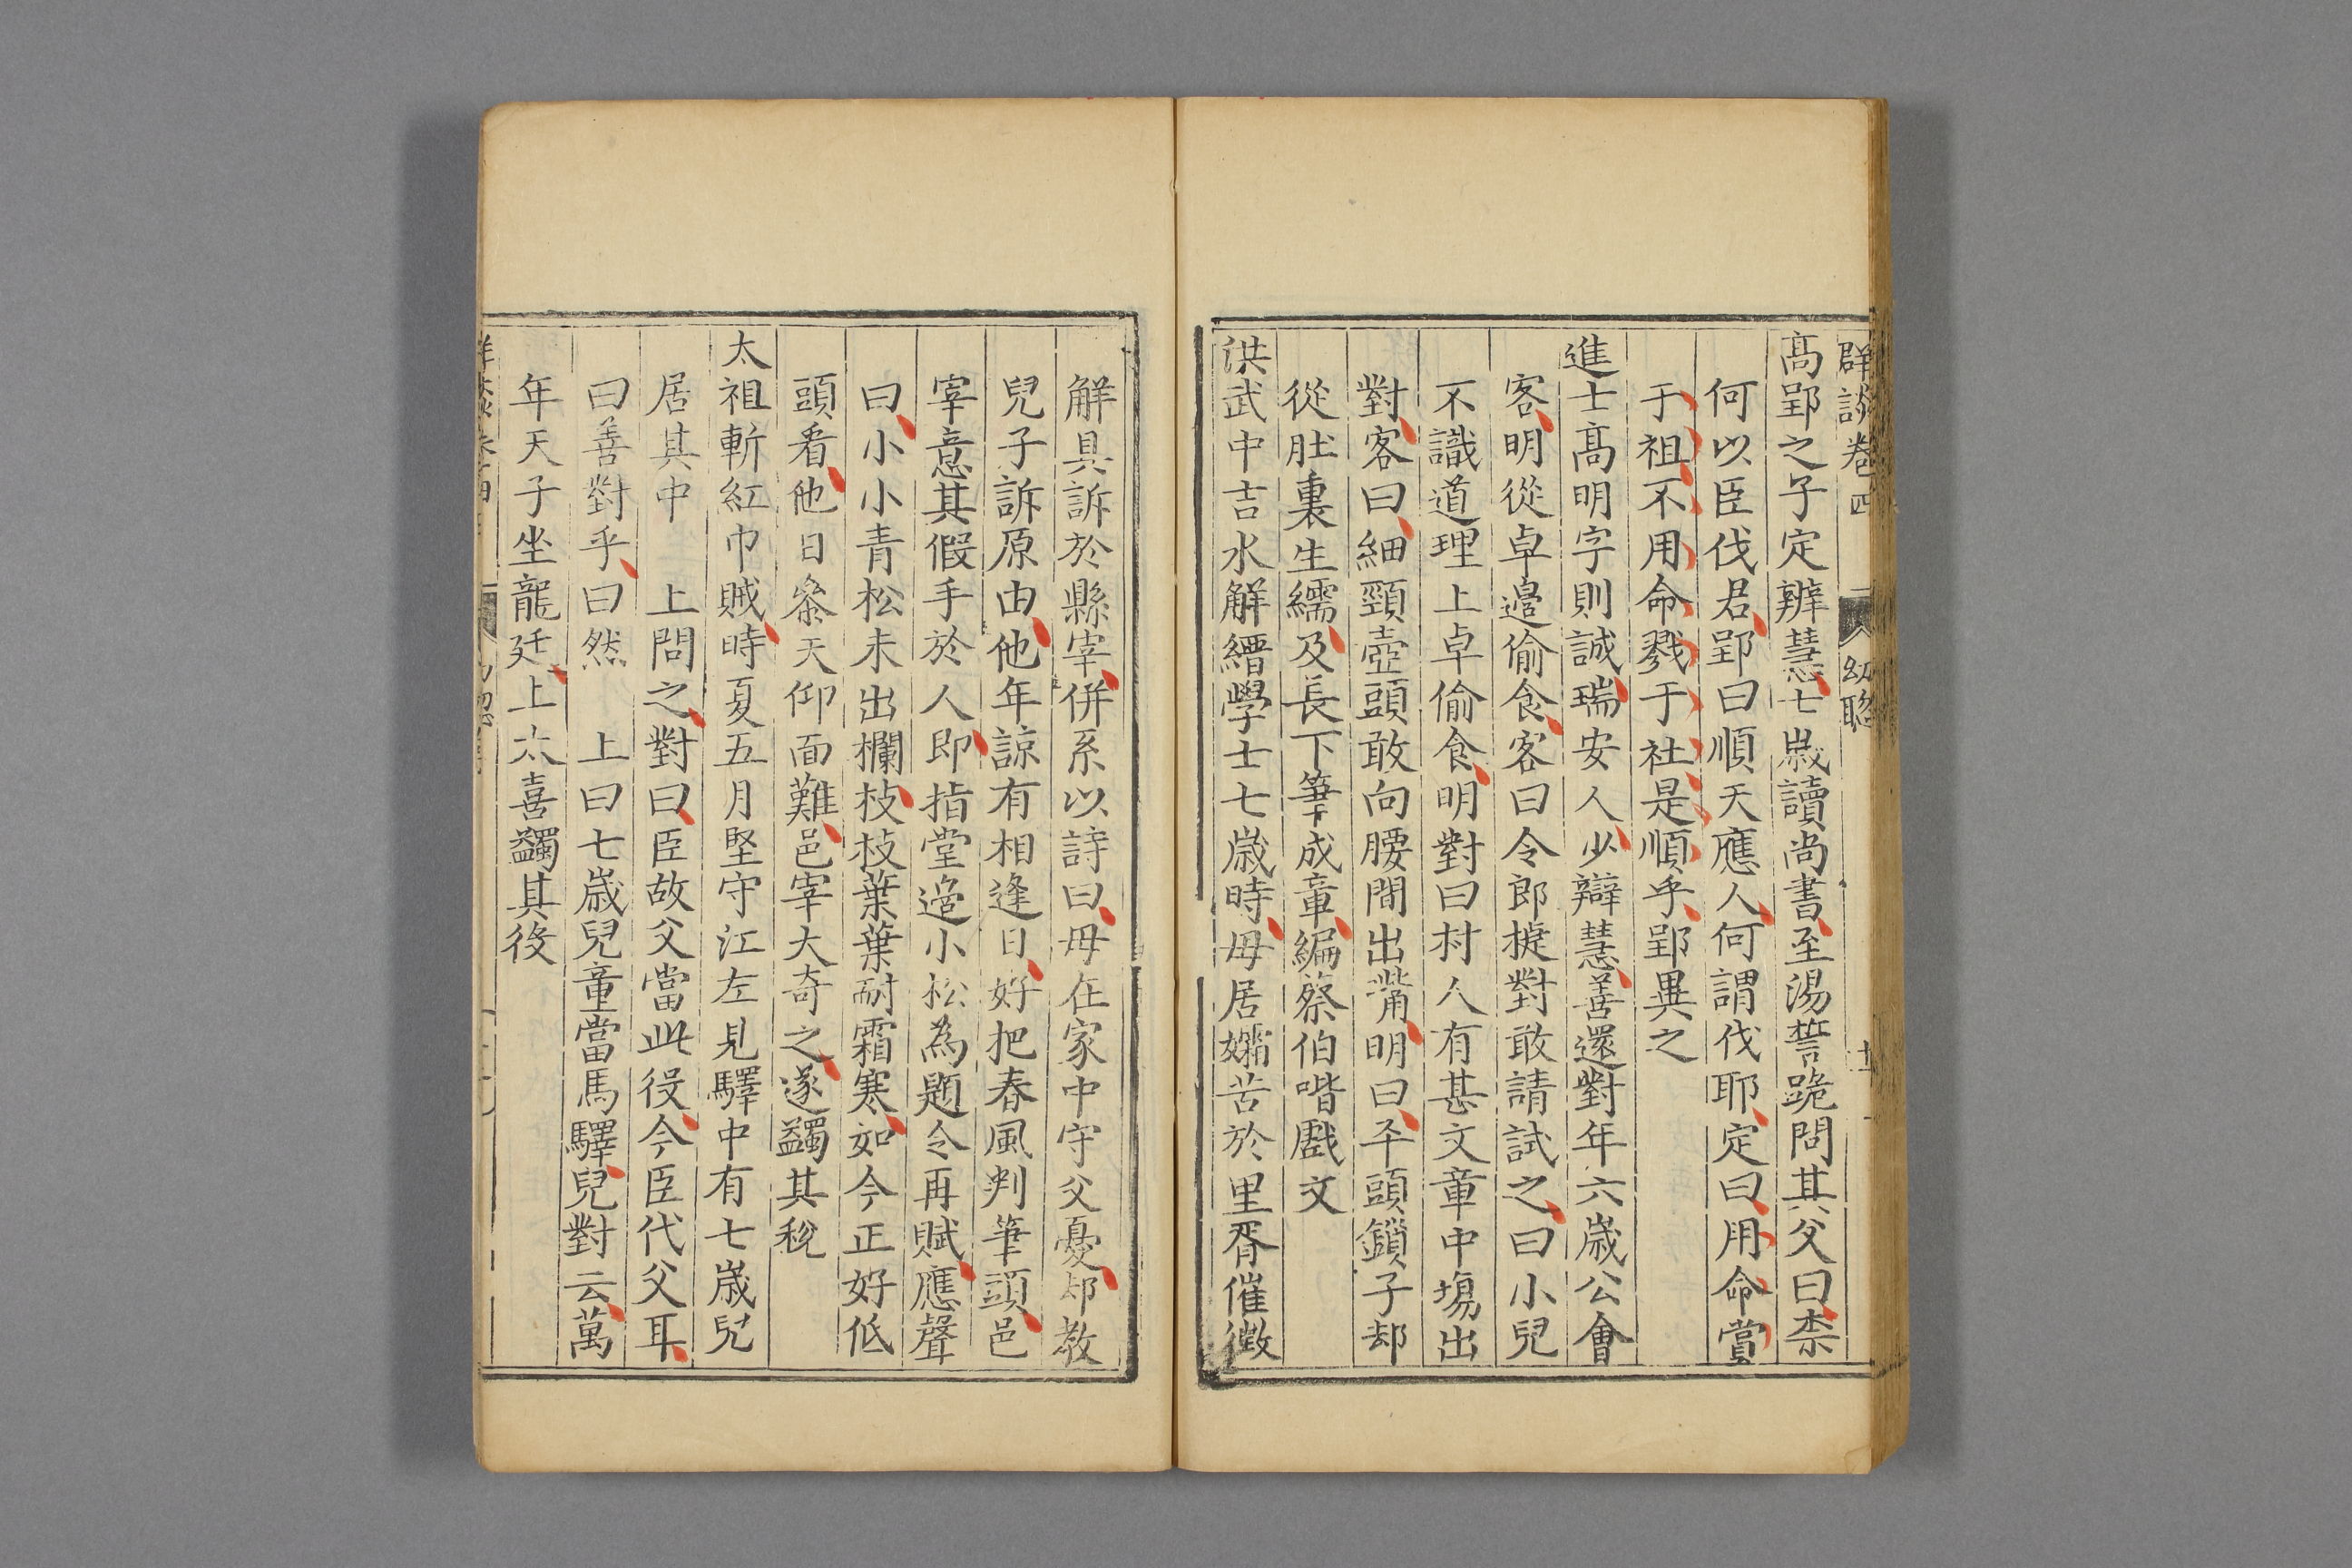 群談卷四 幼聰
高郢之子定辨慧七歲讀尚書至湯誓跪問其父曰柰
何以臣伐君郢曰順天應人何謂伐耶定曰用命賞
于祖不用命戮于社是順乎郢異之
進士高明字則誠瑞安人少辯慧善還對年六歲公會
客明從卓邉偷食客曰令郎㨗對敢請試之曰小兒
不識道理上卓偷食明對曰村人有甚文章中塲出
對客曰細頸壺頭敢向腰間出觜明曰平頭鎖子却
從肚裏生繻及長下筆成章編蔡伯喈戲文
洪武中吉水解縉學士七歲時毋居孀苦於里胥催徵
解具訴於縣宰併系以詩曰毋在家中守父憂却教
兒子訴原由他年諒有相逢日好把春風判筆頭邑
宰意其假手於人即指堂邉小松為題令再賦應聲
曰小小青松未出欄枝枝葉葉耐霜寒如今正好低
頭看他日叅天仰面難邑宰大奇之遂蠲其稅
太祖斬紅巾賊時夏五月堅守江左見驛中有七歲兒
居其中 上問之對曰臣故父當此役今臣代父耳
曰善對乎曰然 上曰七歲兒童當馬驛兒對云萬
年天子坐龍廷上大喜蠲其役